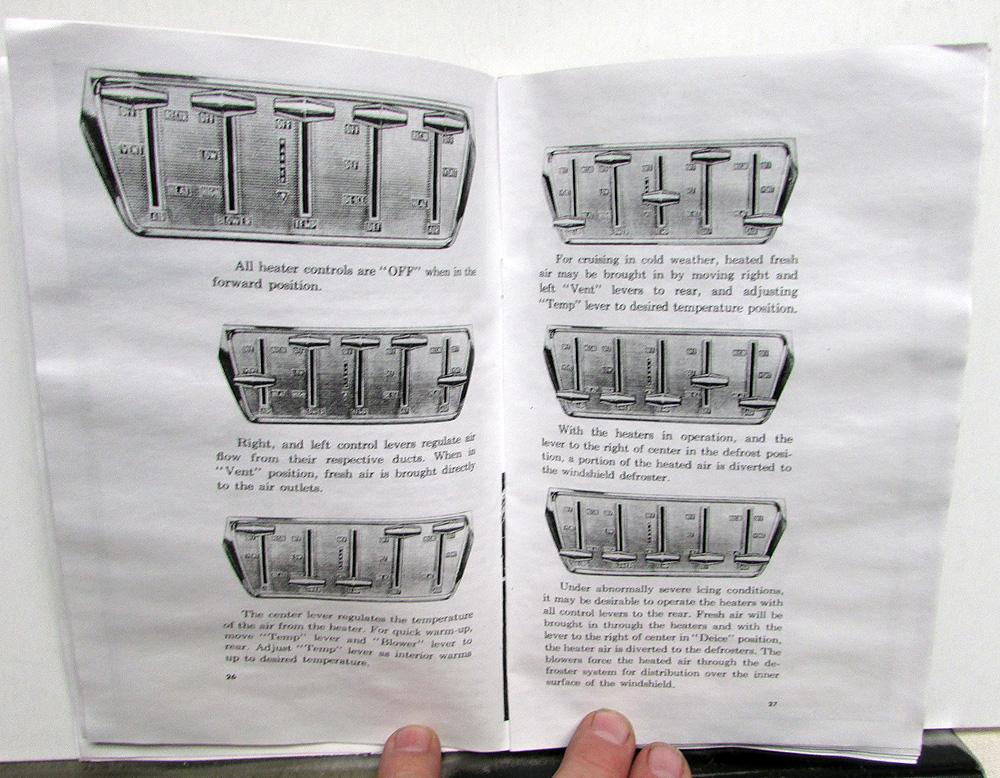 OFF RECIR OFF OFF OFF RECIR OFF
VENT LOW DEF VENT
HEAT HIGH DEICE HEAT
AIR BLOWER TEMP DEF AIR
All heater controls are "OFF" when in the
forward position.
Right, and left control levers regulate air
flow from their respective ducts. When in
"Vent" position, fresh air is brought directly
to the air outlets.
The center lever regulates the temperature
of the air from the heater. For quick warm-up,
move "Temp" lever and "Blower" lever to
rear. Adjust "Temp" lever as interior warms
up to desired temperature.
26
For cruising in cold weather, heated fresh
air may be brought in by moving right and
left "Vent" levers to rear, and adjusting
"Temp" lever to desired temperature position.
With the heaters in operation, and the
lever to the right of center in the defrost posi-
tion, a portion of the heated air is diverted to
the windshield defroster.
Under abnormally severe icing conditions,
it may be desirable to operate the heaters with
all control levers to the rear. Fresh air will be
brought in through the heaters and with the
lever to the right of center in "Deice" position,
the heater air is diverted to the defrosters. The
blowers force the heated air through the de-
froster system for distribution over the inner
surface of the windshield.
27